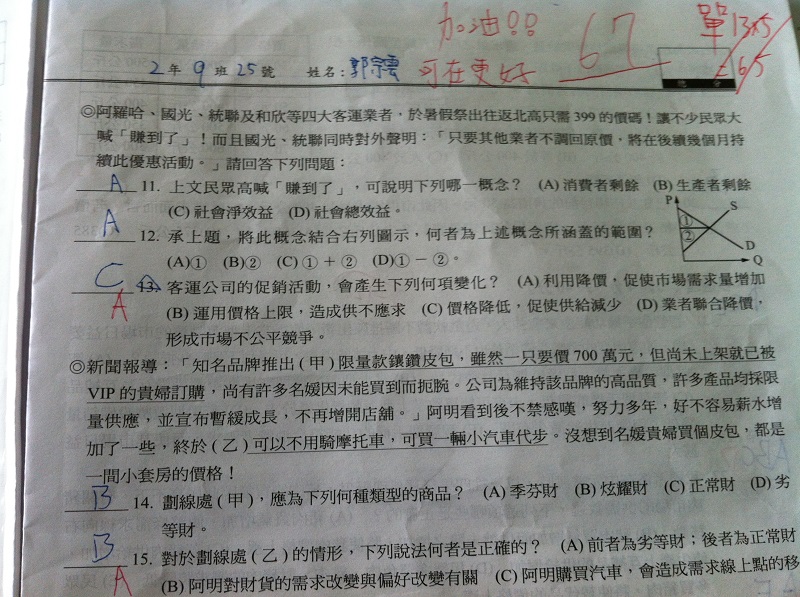 加油!! 67 單13×5
2年9班25號 姓名:郭宗雲 可在更好 =65
◎阿羅哈、國光、統聯及和欣等四大客運業者,於暑假祭出往返北高只需399的價碼!讓不少民眾大
喊「賺到了」!而且國光、統聯同時對外聲明:「只要其他業者不調回原價,將在後續幾個月持
續此優惠活動。」請回答下列問題:
A 11. 上文民眾高喊「賺到了」,可說明下列哪一概念? (A)消費者剩餘 (B)生產者剩餘
(C)社會淨效益 (D)社會總效益。
A 12. 承上題,將此概念結合右列圖示,何者為上述概念所涵蓋的範圍?
(A)① (B)② (C)①+② (D)①-②。
P S ① ② D Q
C 13. 客運公司的促銷活動,會產生下列何項變化? (A)利用降價,促使市場需求量增加
A (B)運用價格上限,造成供不應求 (C)價格降低,促使供給減少 (D)業者聯合降價,
形成市場不公平競爭。
◎新聞報導:「知名品牌推出(甲)限量款鑲鑽皮包,雖然一只要價700萬元,但尚未上架就已被
VIP的貴婦訂購,尚有許多名媛因未能買到而扼腕。公司為維持該品牌的高品質,許多產品均採限
量供應,並宣布暫緩成長,不再增開店舖。」阿明看到後不禁感嘆,努力多年,好不容易薪水增
加了一些,終於(乙)可以不用騎摩托車,可買一輛小汽車代步。沒想到名媛貴婦買個皮包,都是
一間小套房的價格!
B 14. 劃線處(甲),應為下列何種類型的商品? (A)季芬財 (B)炫耀財 (C)正常財 (D)劣
等財。
B 15. 對於劃線處(乙)的情形,下列說法何者是正確的? (A)前者為劣等財;後者為正常財
A (B)阿明對財貨的需求改變與偏好改變有關 (C)阿明購買汽車,會造成需求線上點的移